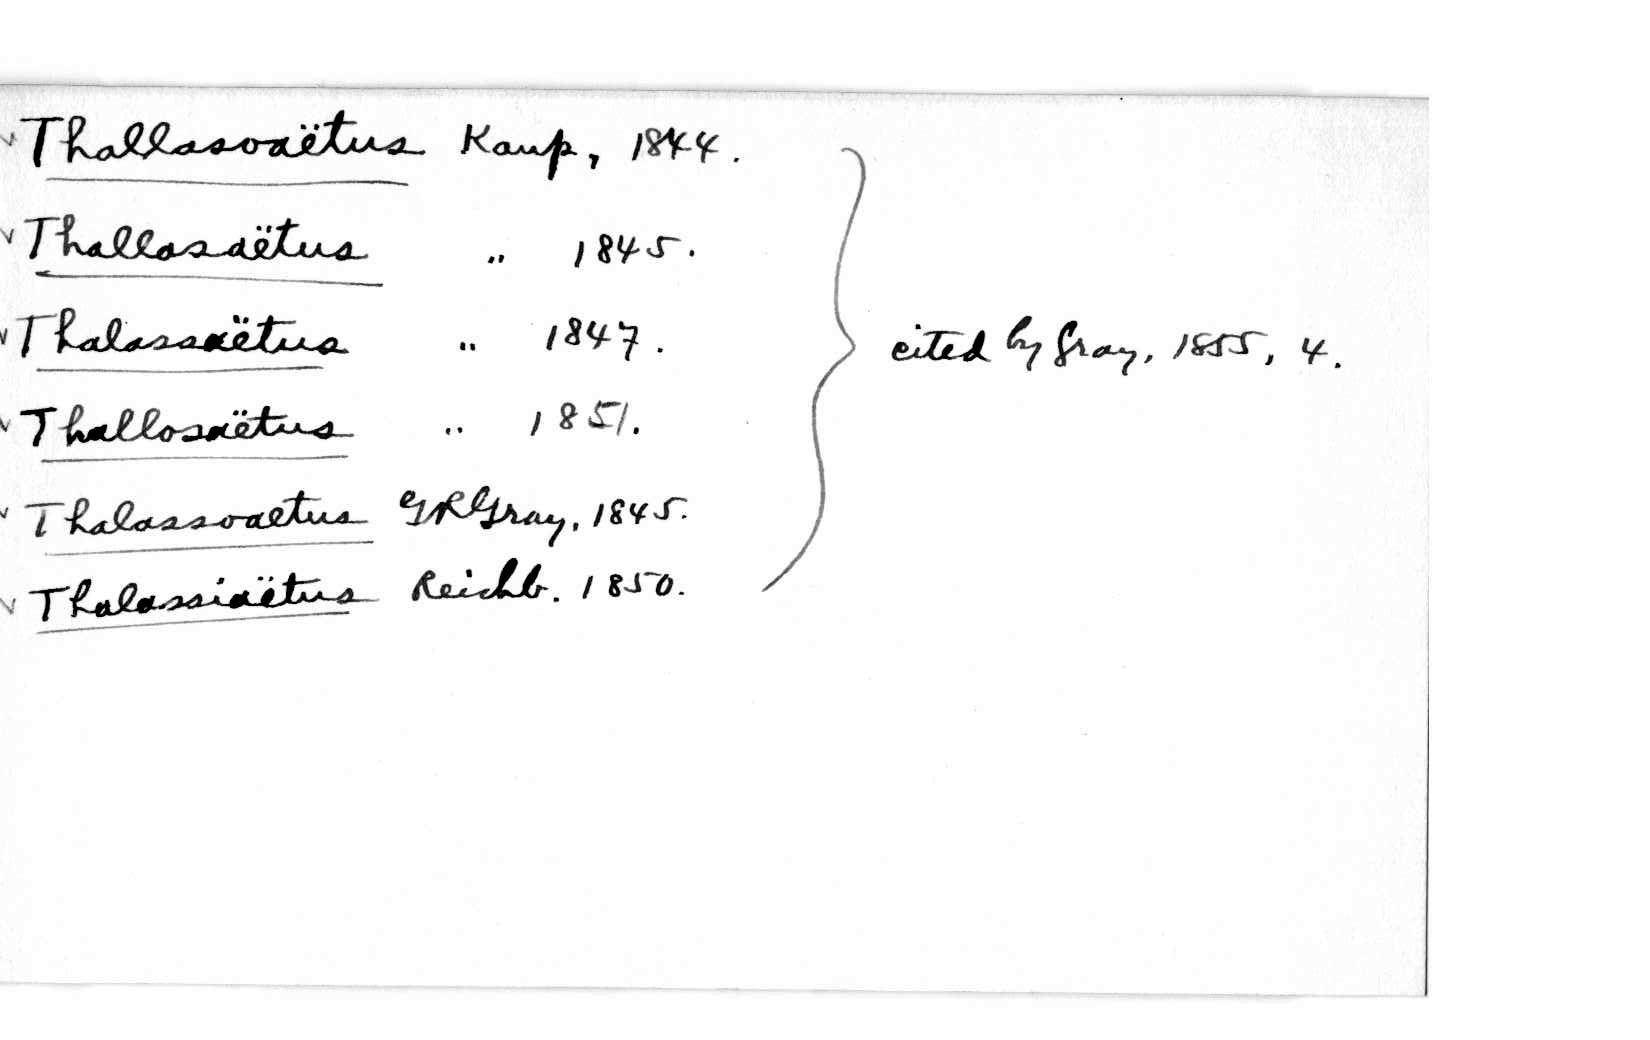 ✓ Thallasoaëtus Kaup, 1844.
✓ Thallasaëtus " 1845.
✓ Thalassaëtus " 1847.
✓ Thallosaëtus " 1851.
✓ Thalassoaetus GRGray, 1845.
✓ Thalassiaëtus Reichb. 1850.
} cited by Gray, 1855, 4.